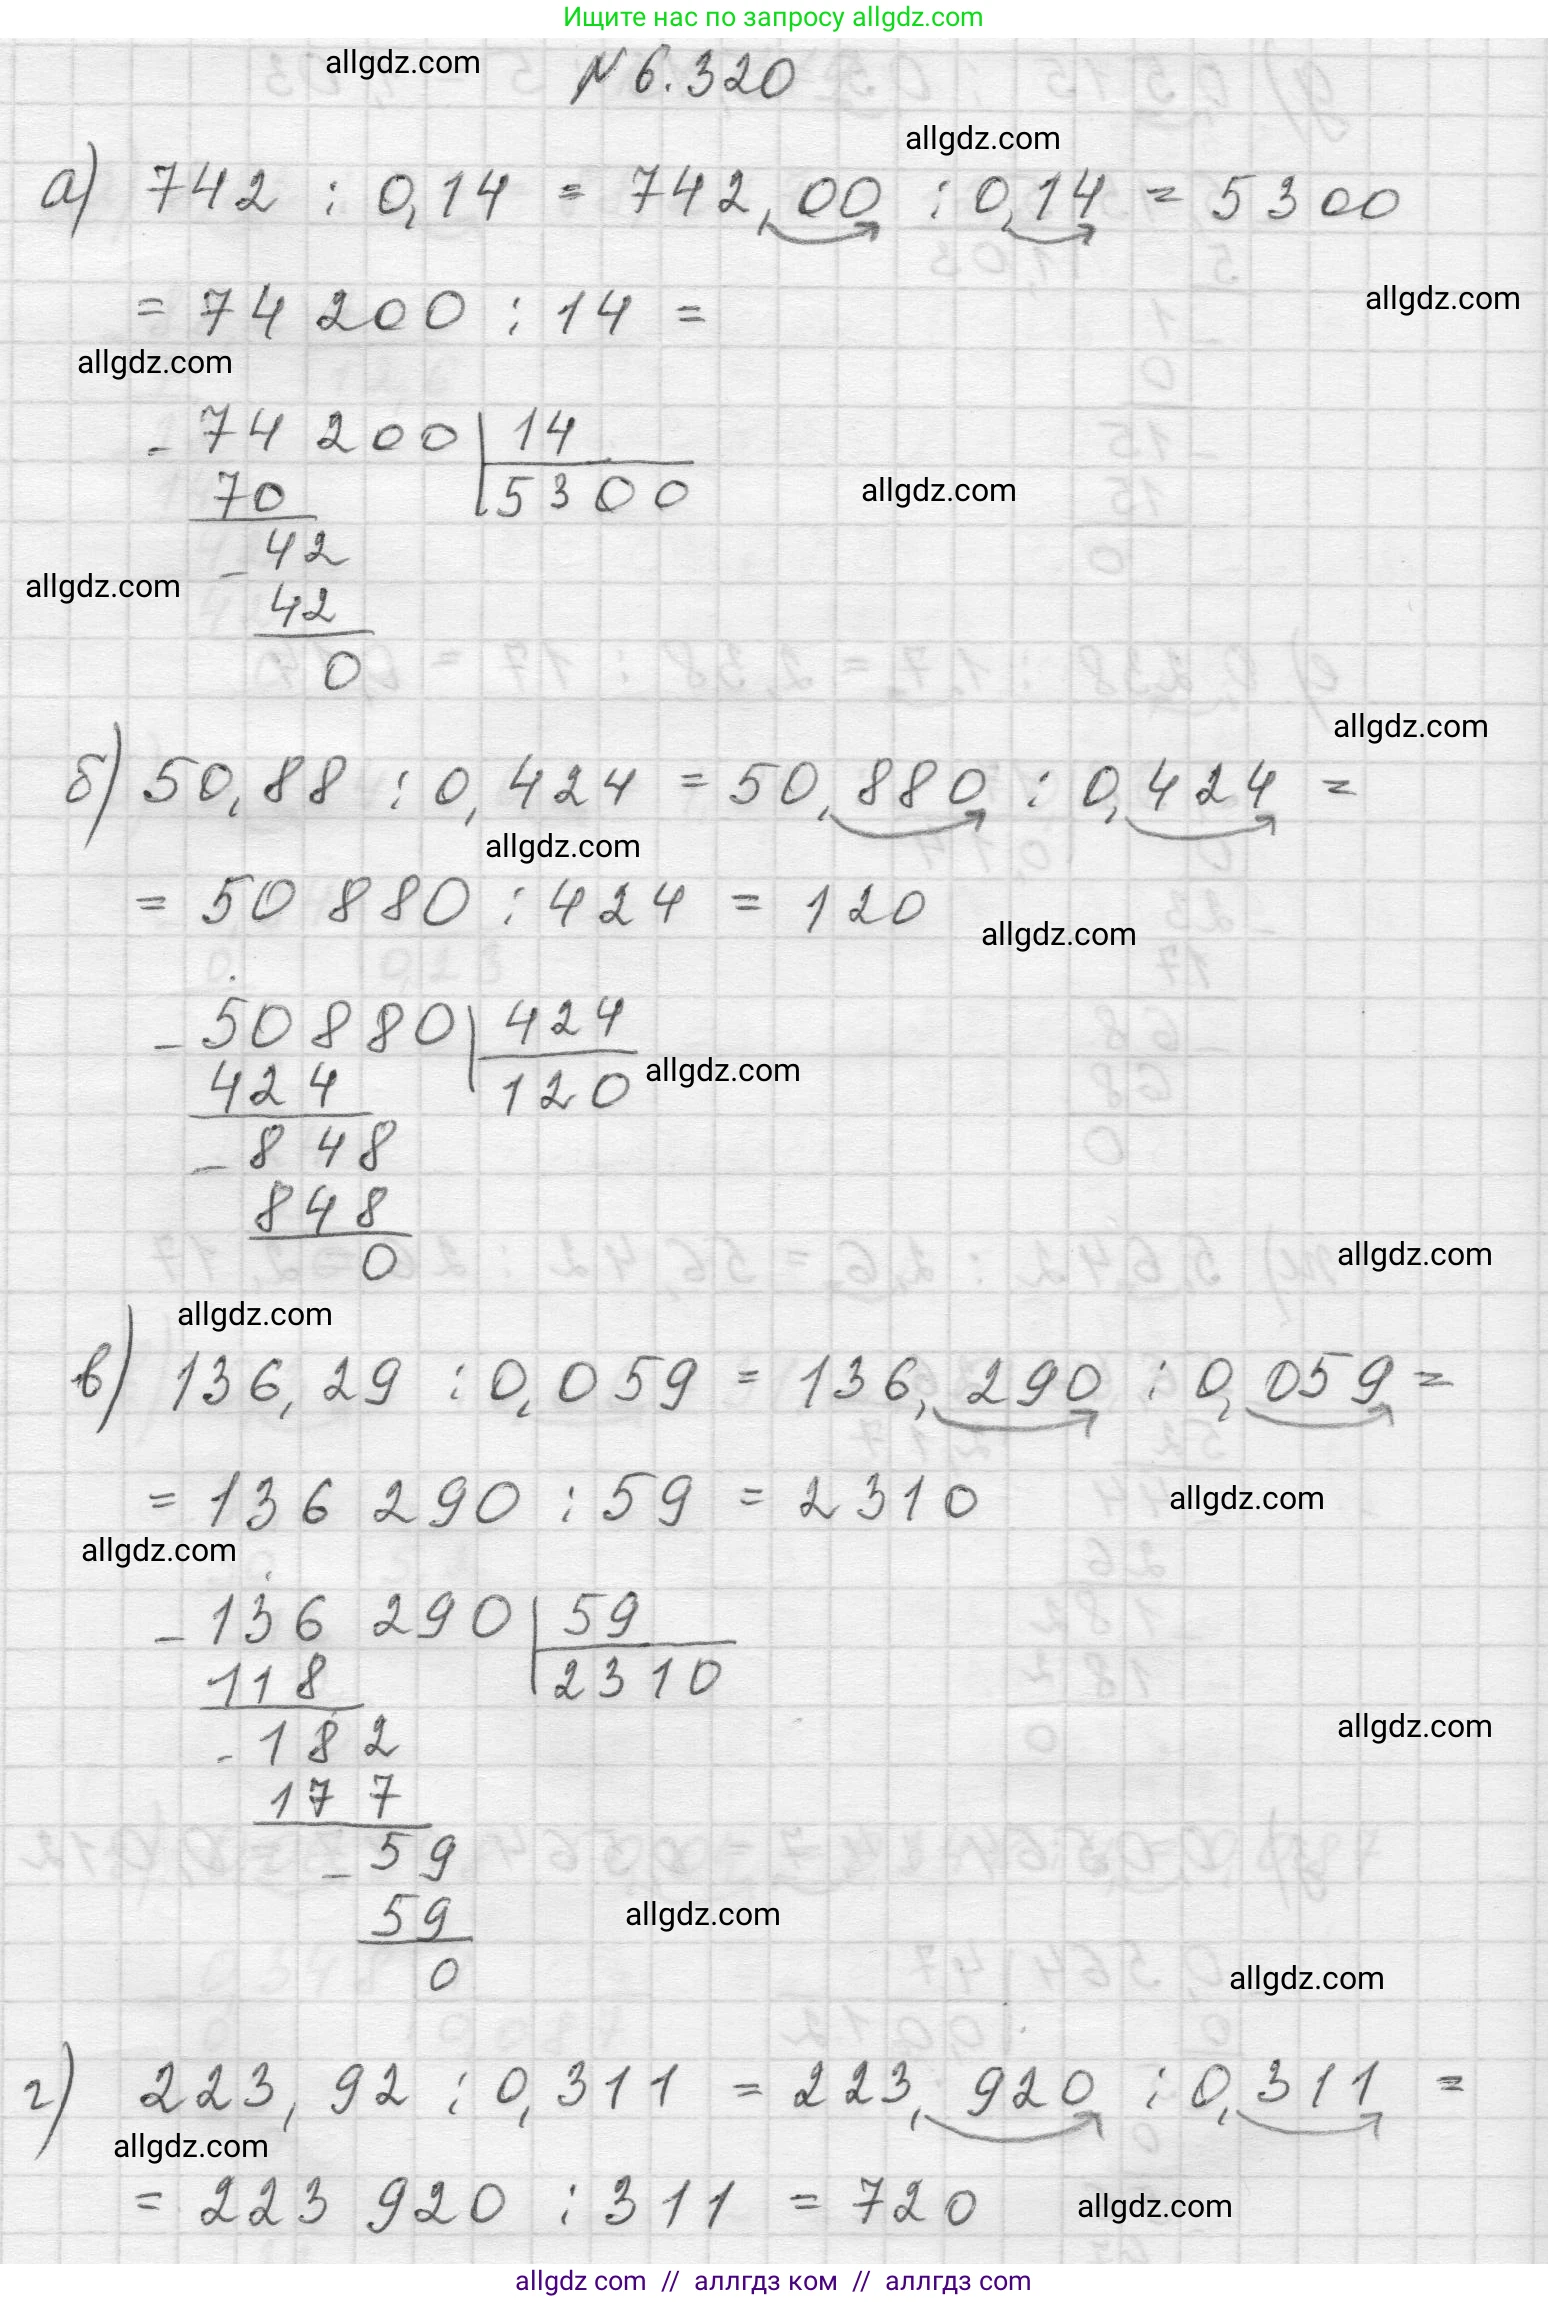 Ищите нас по запросу allgdz.com
allgdz.com
№ 6.320
allgdz.com
а) 742 : 0,14 = 742,00 : 0,14 = 5300
allgdz.com
= 74 200 : 14 =
allgdz.com
- 74 200 | 14
70 5300
allgdz.com
- 42
allgdz.com
42
0
allgdz.com
б) 50,88 : 0,424 = 50,880 : 0,424 =
allgdz.com
= 50 880 : 424 = 120
allgdz.com
- 50880 | 424
424 120
allgdz.com
- 848
848
0
allgdz.com
allgdz.com
в) 136,29 : 0,059 = 136,290 : 0,059 =
= 136 290 : 59 = 2310
allgdz.com
allgdz.com
- 136 290 | 59
118 2310
- 182
allgdz.com
177
- 59
59
allgdz.com
0
allgdz.com
г) 223,92 : 0,311 = 223,920 : 0,311 =
allgdz.com
= 223 920 : 311 = 720
allgdz.com
allgdz com // аллгдз ком // аллгдз com